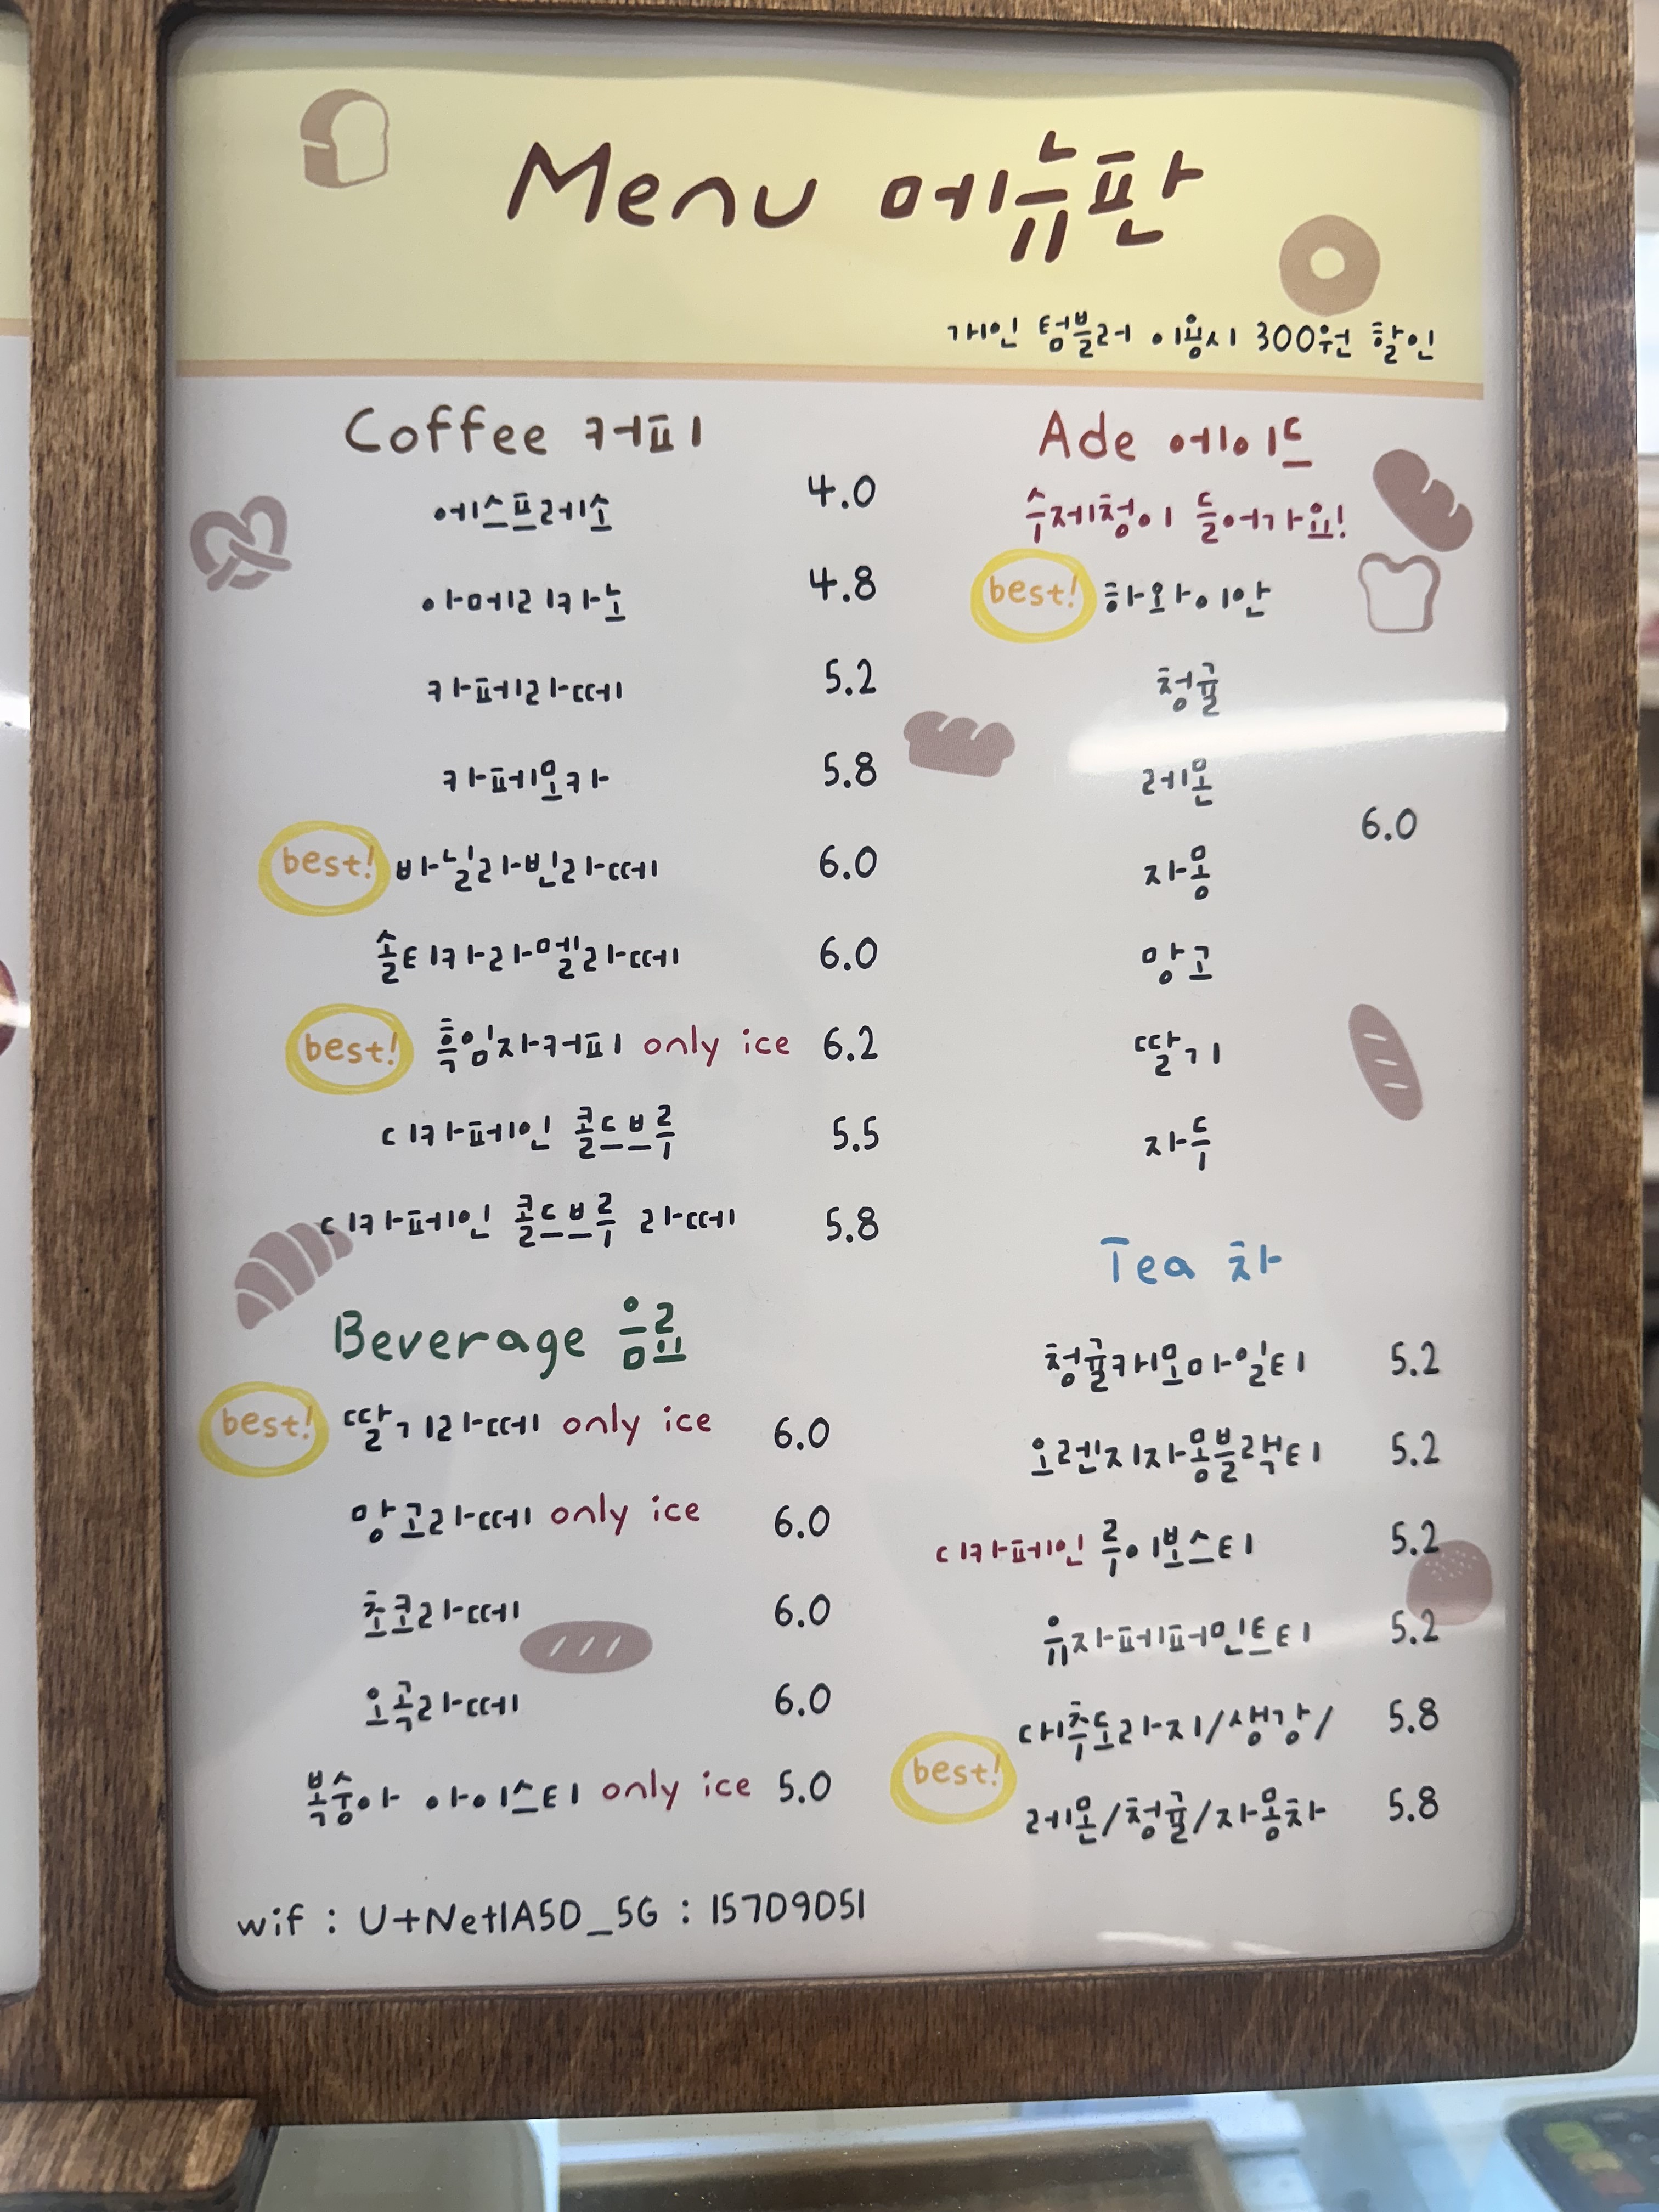 Menu 메뉴판
개인 텀블러 이용시 300원 할인
Coffee 커피
에스프레소 4.0
아메리카노 4.8
카페라떼 5.2
카페모카 5.8
best! 바닐라빈라떼 6.0
솔티카라멜라떼 6.0
best! 흑임자커피 only ice 6.2
디카페인 콜드브루 5.5
디카페인 콜드브루 라떼 5.8
Beverage 음료
best! 딸기라떼 only ice 6.0
망고라떼 only ice 6.0
초코라떼 6.0
오곡라떼 6.0
복숭아 아이스티 only ice 5.0
Ade 에이드
수제청이 들어가요!
best! 하와이안
청귤
레몬
6.0
자몽
망고
딸기
자두
Tea 차
청귤캐모마일티 5.2
오렌지자몽블랙티 5.2
디카페인 루이보스티 5.2
유자페퍼민트티 5.2
대추도라지/생강/ 5.8
best!
레몬/청귤/자몽차 5.8
wif : U+Net1A5D_5G : 15709D51